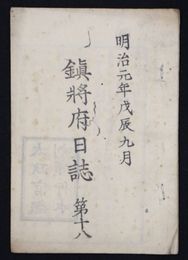 明治元年戊辰九月
鎭將府日誌 第十八